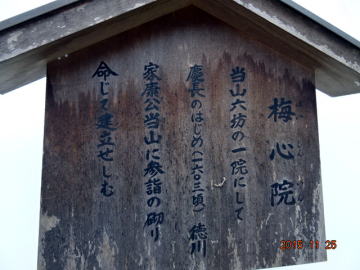 梅心院
当山六坊の一院にして
慶長のはじめ(一六〇三頃)徳川
家康公当山に参詣の砌り
命じて建立せしむ
2015 11 25